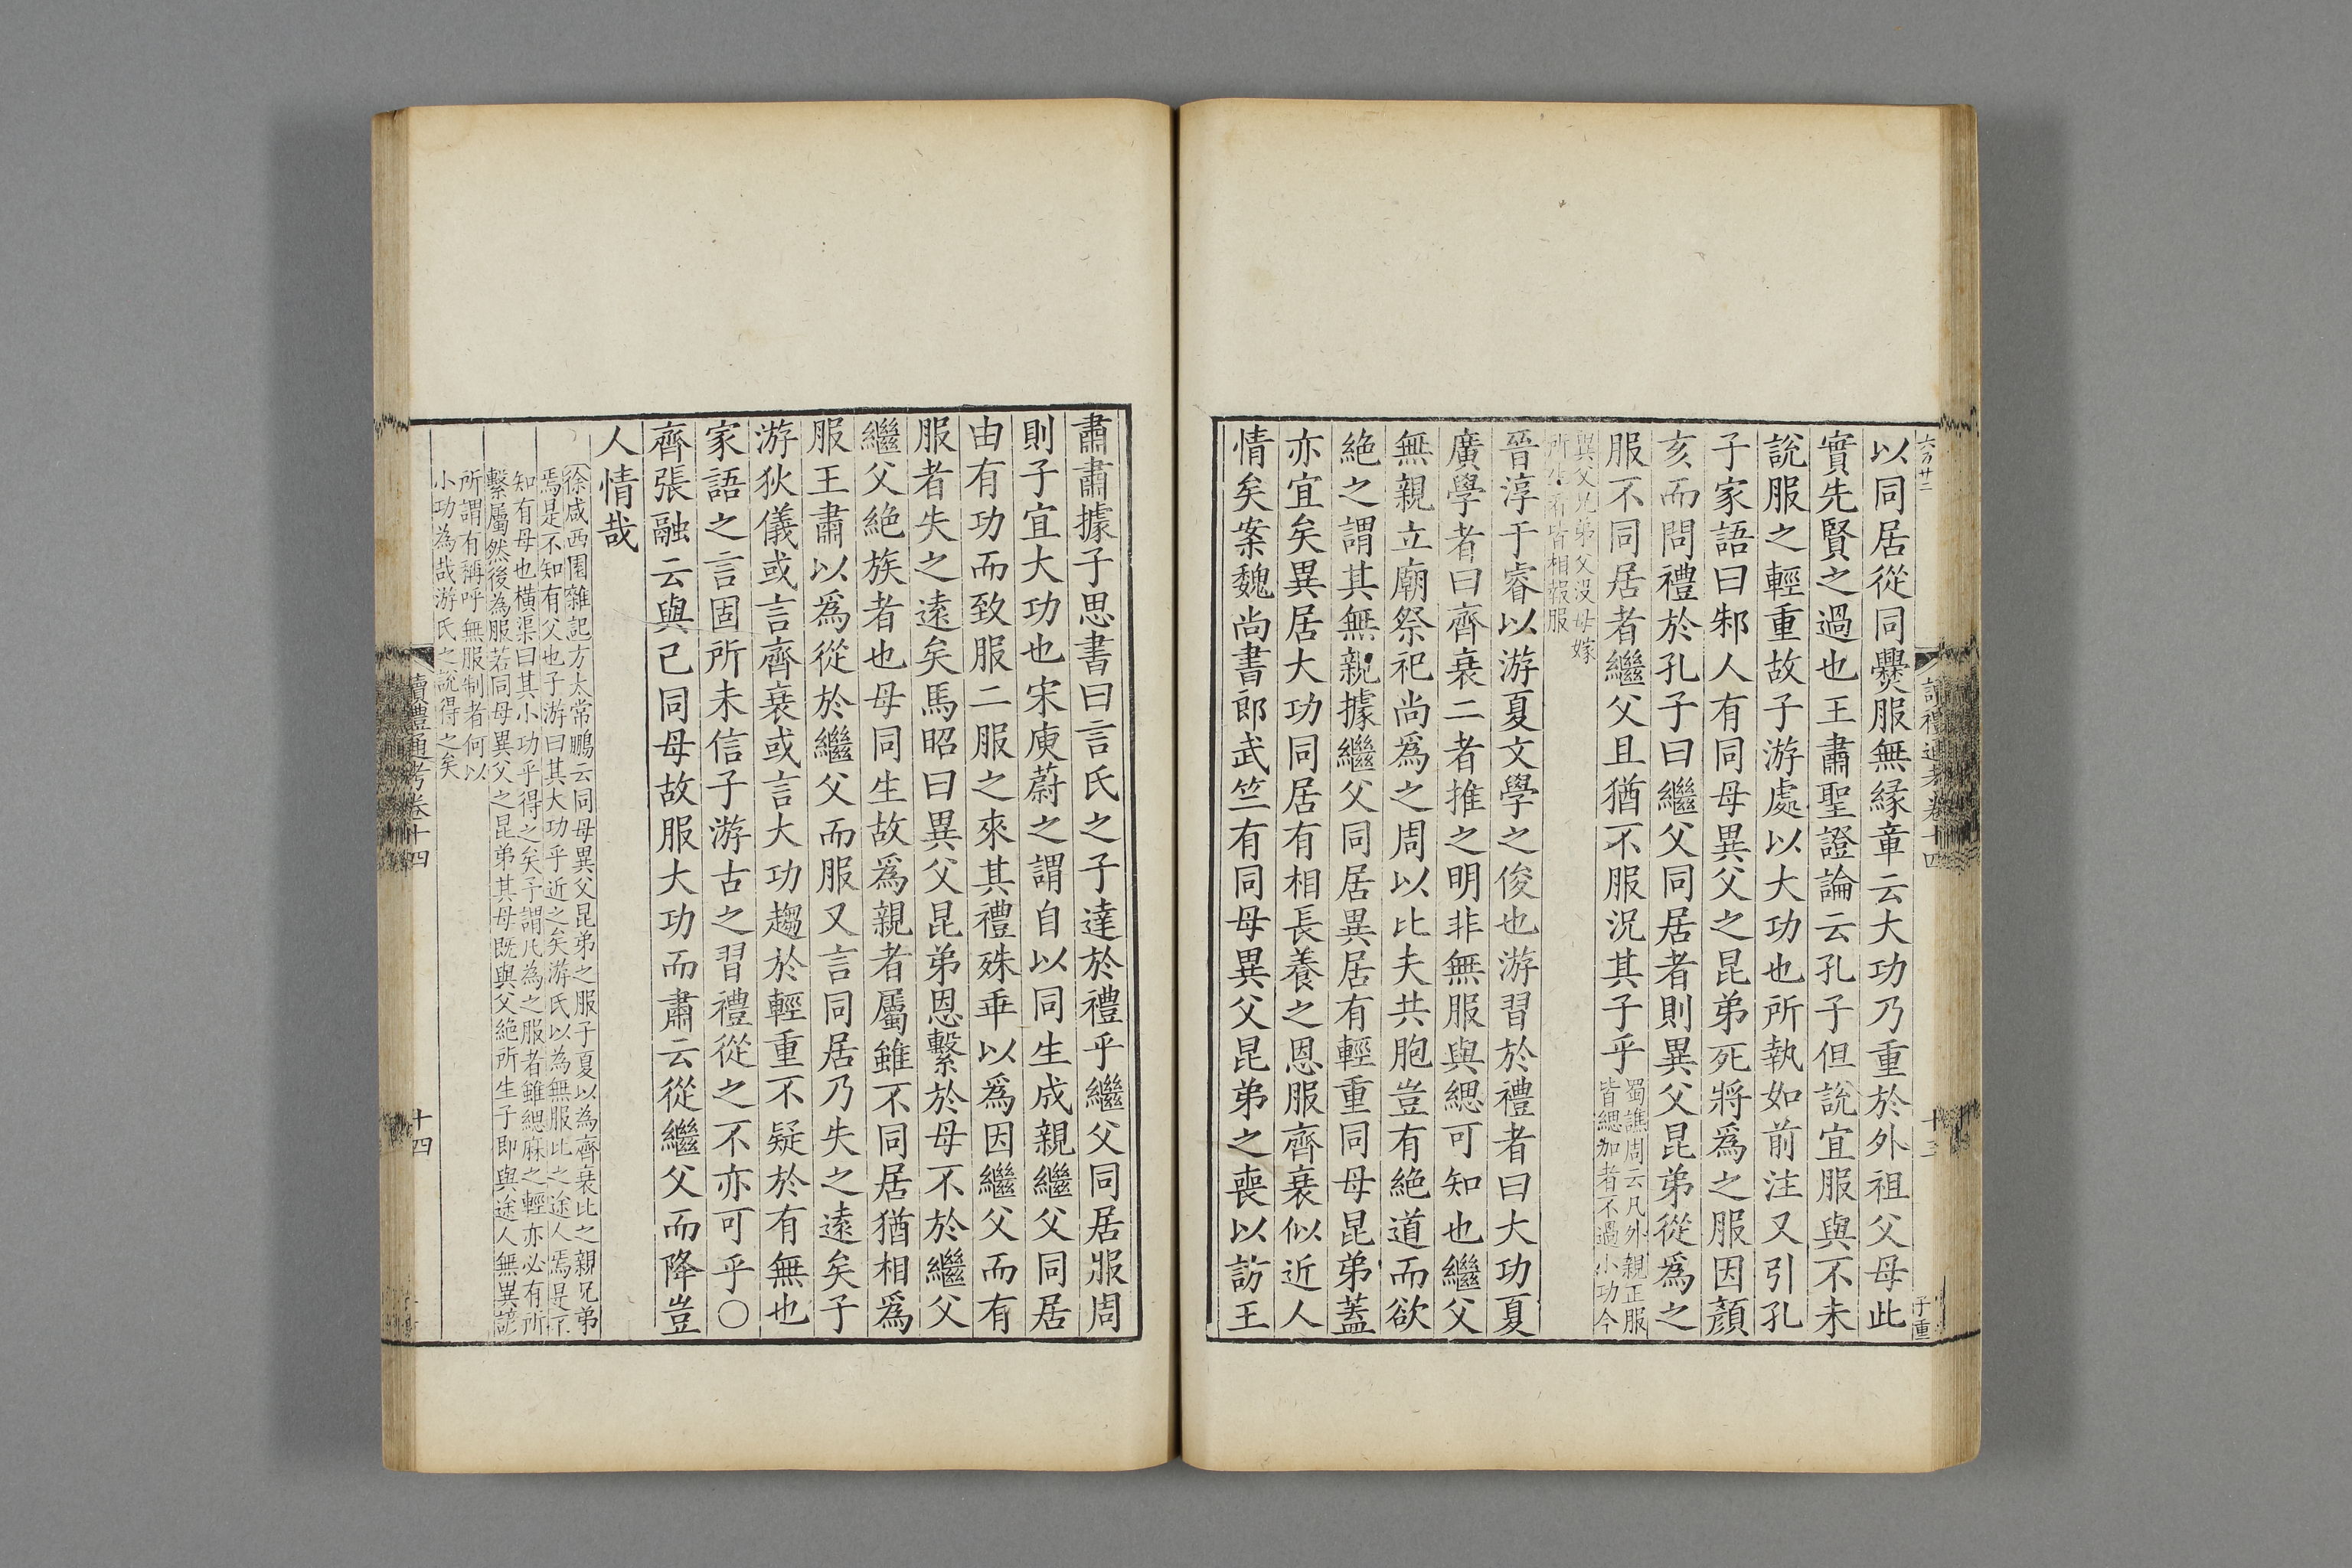 六百廿二
讀禮通考卷十四
十三
子重
以同居從同爨服無緣章云大功乃重於外祖父母此
實先賢之過也王肅聖證論云孔子但說宜服與不未
說服之輕重故子游處以大功也所執如前注又引孔
子家語曰邾人有同母異父之昆弟死將爲之服因顏
亥而問禮於孔子曰繼父同居者則異父昆弟從爲之
服不同居者繼父且猶不服況其子乎
蜀譙周云凡外親正服
皆緦加者不過小功今
與父兄弟父沒母嫁
所生者皆相報服
晉淳于睿以游夏文學之俊也游習於禮者曰大功夏
廣學者曰齊衰二者推之明非無服與緦可知也繼父
無親立廟祭祀尚爲之周以比夫共胞豈有絶道而欲
絶之謂其無親據繼父同居異居有輕重同母昆弟蓋
亦宜矣異居大功同居有相長養之恩服齊衰似近人
情矣案魏尚書郎武竺有同母異父昆弟之喪以訪王
肅肅據子思書曰言氏之子達於禮乎繼父同居服周
則子宜大功也宋庾蔚之謂自以同生成親繼父同居
由有功而致服二服之來其禮殊乖以爲因繼父而有
服者失之遠矣馬昭曰異父昆弟恩繫於母不於繼父
繼父絶族者也母同生故爲親者屬雖不同居猶相爲
服王肅以爲從於繼父而服又言同居乃失之遠矣子
游狄儀或言齊衰或言大功趨於輕重不疑於有無也
家語之言固所未信子游古之習禮從之不亦可乎〇
齊張融云與己同母故服大功而肅云從繼父而降豈
人情哉
徐咸西園雜記方太常鵬云同母異父昆弟之服子夏以為齊衰比之親兄弟
焉是不知有父也子游曰其大功乎近之矣游氏以為無服比之途人焉是不
知有母也橫渠曰其小功乎得之矣予謂凡為之服者雖緦麻之輕亦必有所
繫屬然後為服若同母異父之昆弟其母既與父絶所生子即與途人無異諺
所謂有稱呼無服制者何以
小功為哉游氏之說得之矣
讀禮通考卷十四
十四